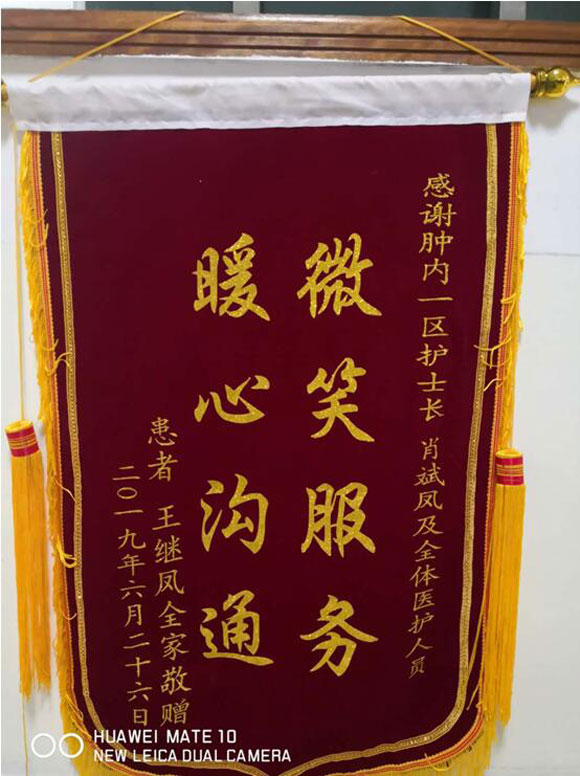 感谢肿内一区护士长 肖斌凤及全体医护人员
微笑服务
暖心沟通
患者 王继凤全家敬赠
二〇一九年六月二十六日
HUAWEI MATE 10
NEW LEICA DUAL CAMERA